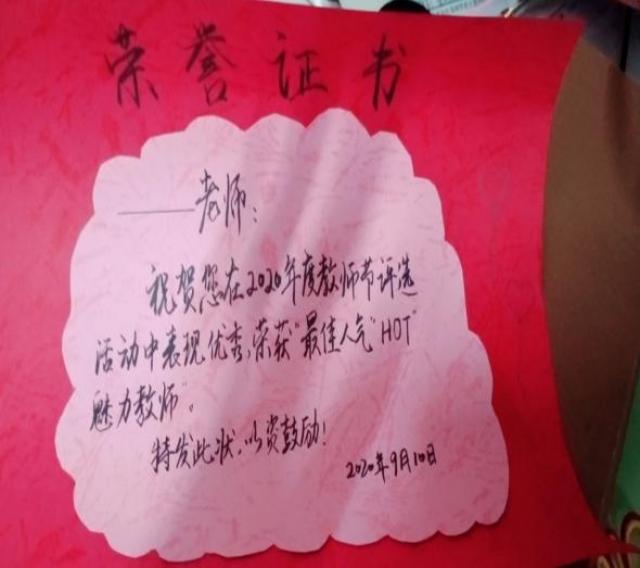 荣誉证书
______老师：
祝贺您在2020年度教师节评选
活动中表现优秀,荣获"最佳人气"HOT"
魅力教师"。
特发此状,以资鼓励!
2020年9月10日